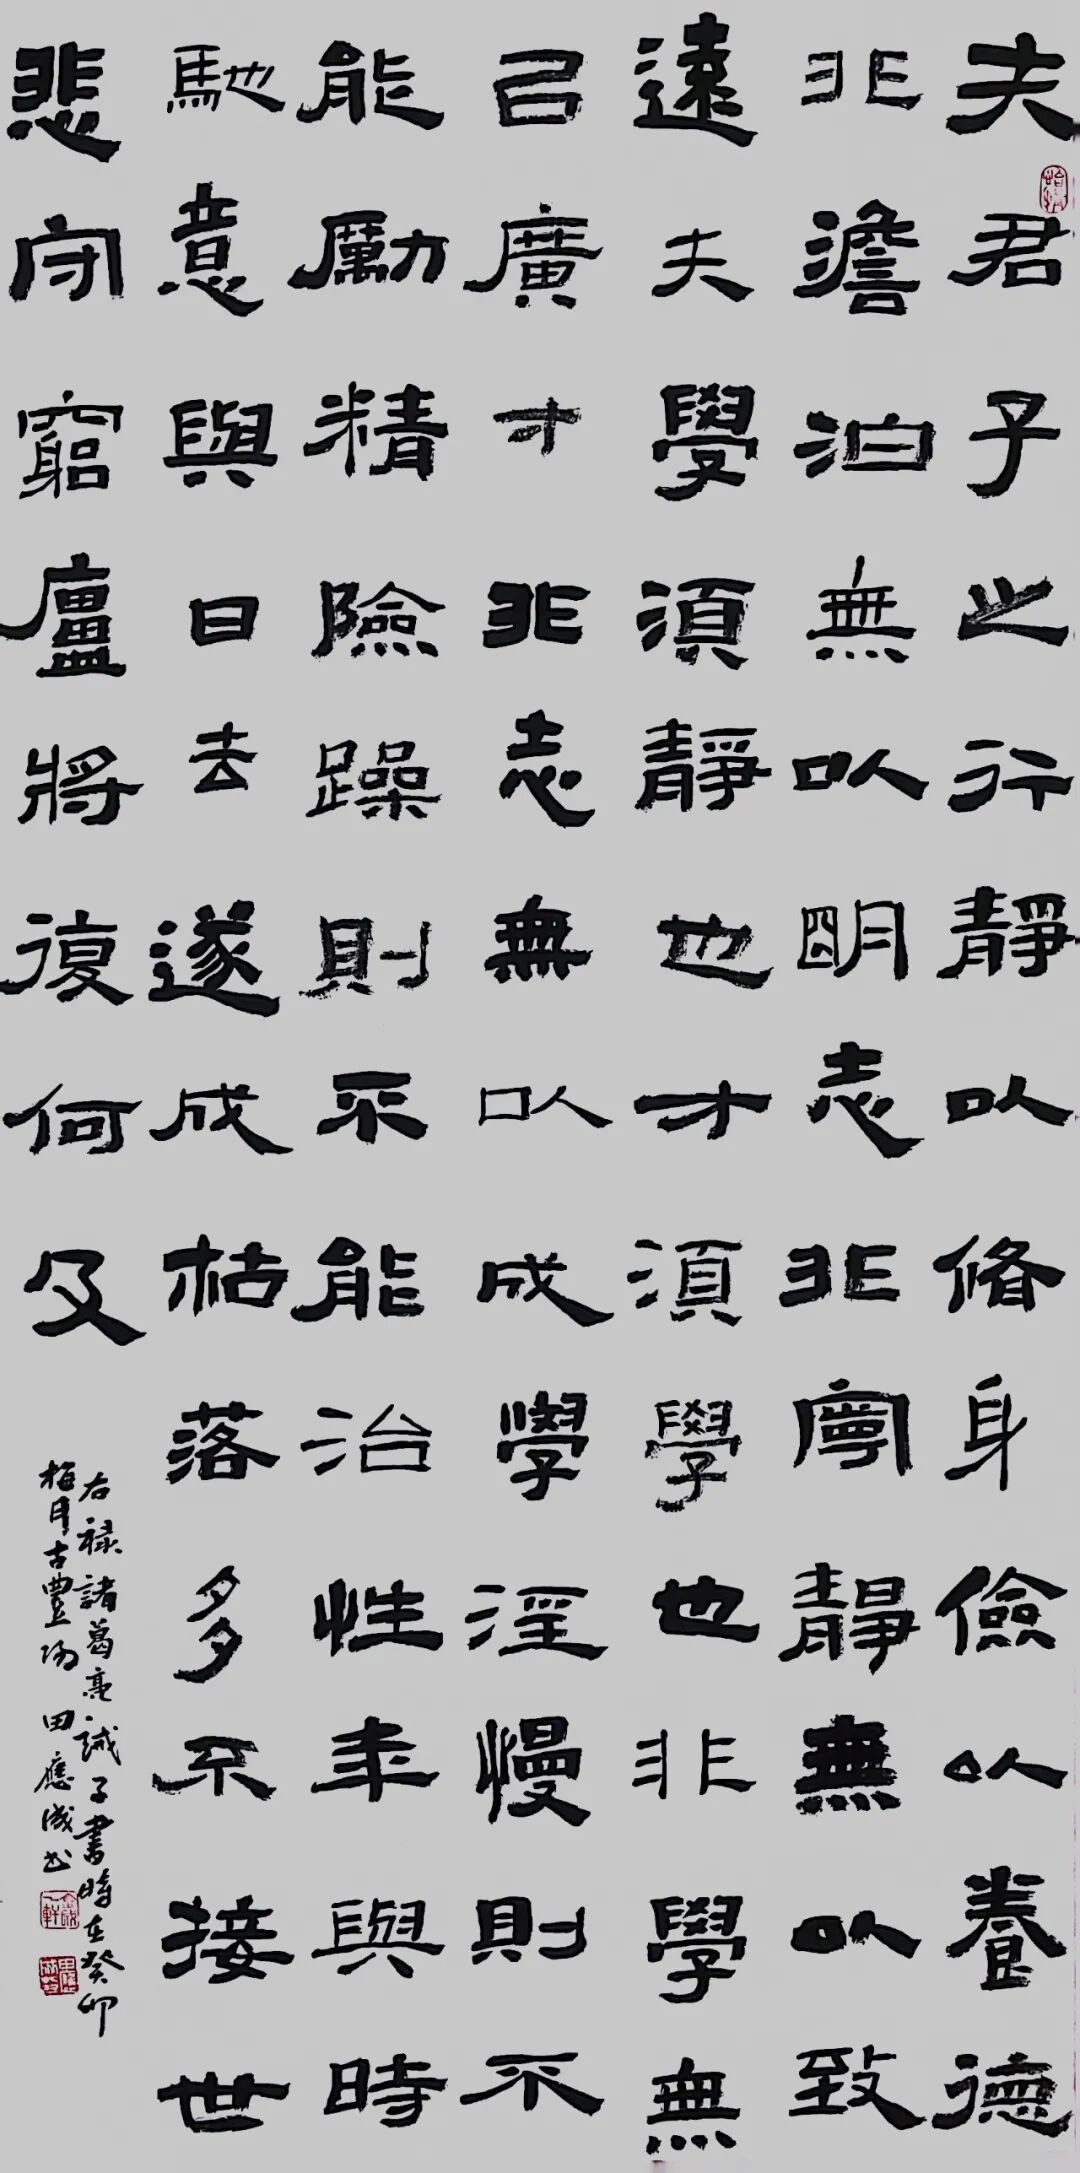 夫君子之行靜以脩身儉以養德
非澹泊無以明志非寧靜無以致
遠夫學須靜也才須學也非學無
己廣才非志無以成學淫慢則不
能勵精險躁則不能治性年與時
馳意與日去遂成枯落多不接世
悲守窮廬將復何及
右祿諸葛亮誡子書時在癸卯
梅月古豐陽田應成书